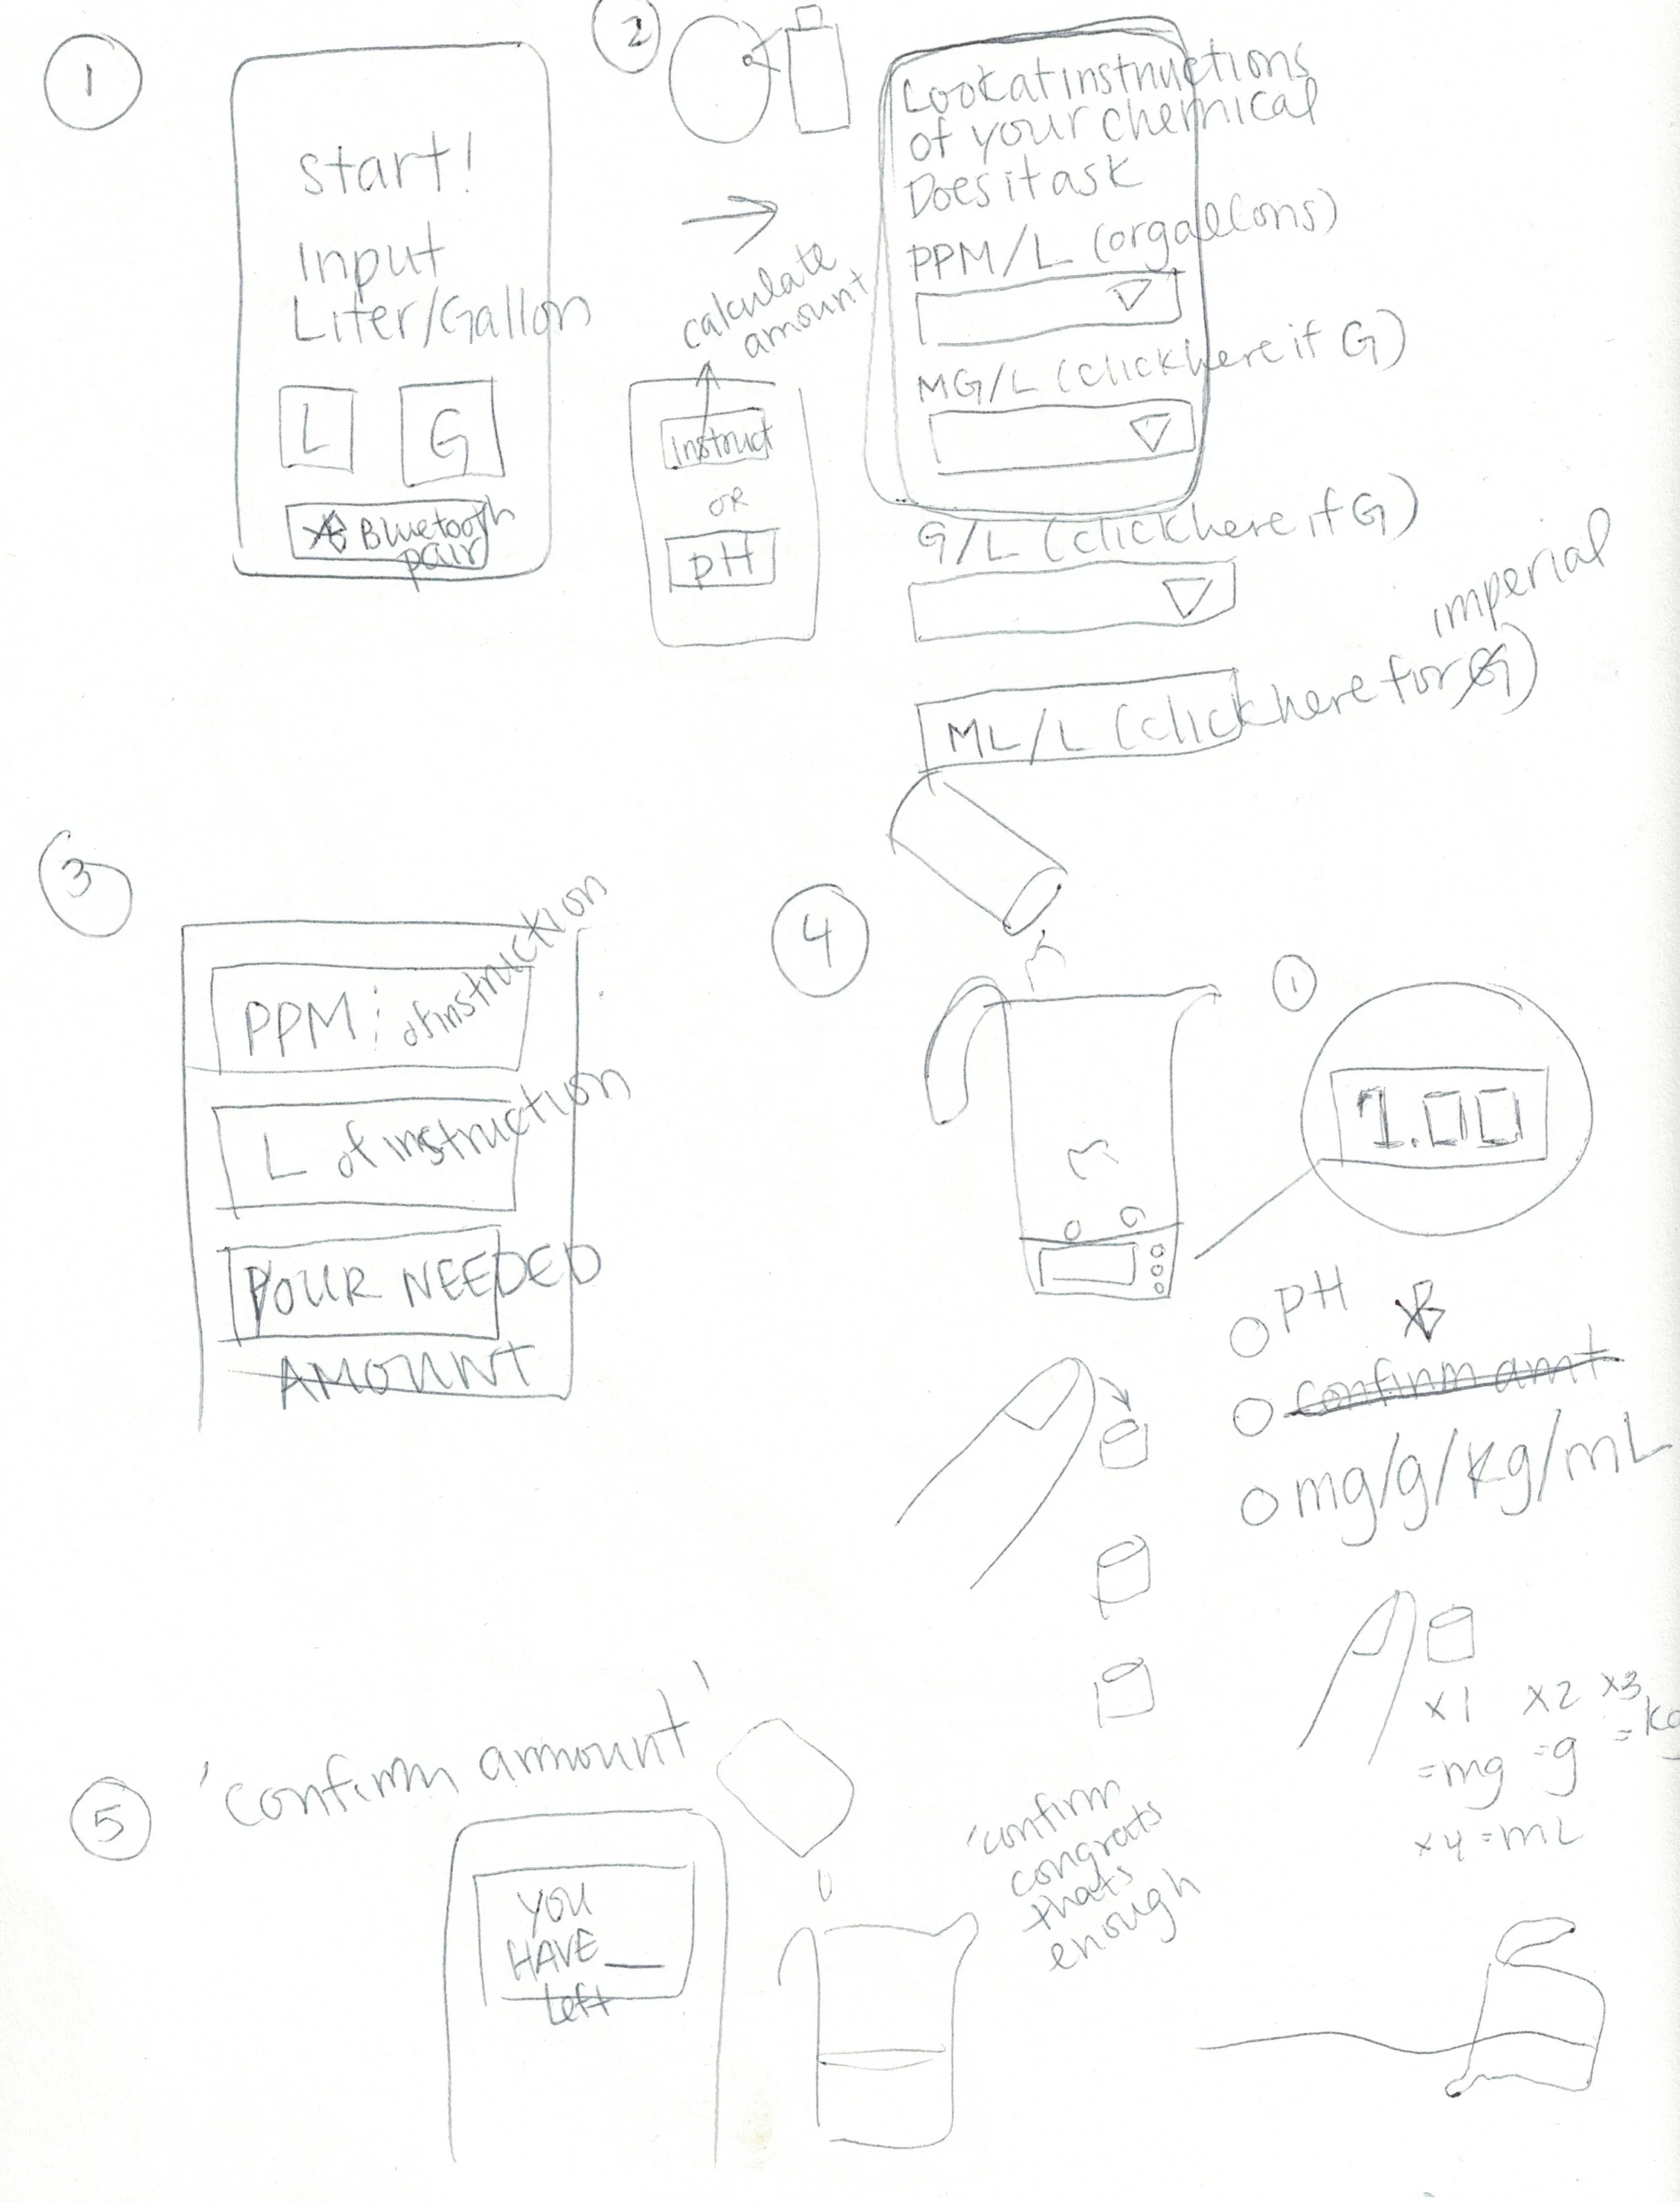 1
start!
Input
Liter/Gallon
L
G
Bluetooth
pair
2
calculate
amount
Instruct
OR
pH
Look at instructions
of your chemical
Does it ask
PPM/L (or gallons)
MG/L (click here if G)
G/L (click here if G)
imperial
ML/L (click here for G)
3
PPM: of instruction
L of instruction
POUR NEEDED
AMOUNT
4
1
1.00
PH
confirm amt
mg/g/kg/mL
x1 x2 x3
=mg =g =kg
x4=mL
5
'confirm amount'
YOU
HAVE __
left
'confirm
congrats
thats
enough